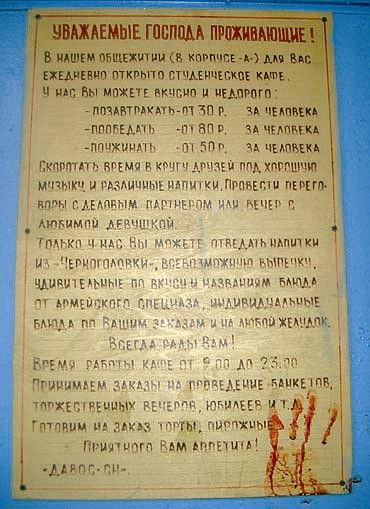 УВАЖАЕМЫЕ ГОСПОДА ПРОЖИВАЮЩИЕ!
В НАШЕМ ОБЩЕЖИТИИ (В КОРПУСЕ -А-) ДЛЯ ВАС
ЕЖЕДНЕВНО ОТКРЫТО СТУДЕНЧЕСКОЕ КАФЕ.
У НАС ВЫ МОЖЕТЕ ВКУСНО И НЕДОРОГО:
-ПОЗАВТРАКАТЬ-ОТ 30 Р. ЗА ЧЕЛОВЕКА
-ПООБЕДАТЬ -ОТ 80 Р. ЗА ЧЕЛОВЕКА.
-ПОУЖИНАТЬ -ОТ 50 Р. ЗА ЧЕЛОВЕКА
СКОРОТАТЬ ВРЕМЯ В КРУГУ ДРУЗЕЙ ПОД ХОРОШУЮ
МУЗЫКУ И РАЗЛИЧНЫЕ НАПИТКИ. ПРОВЕСТИ ПЕРЕГО-
ВОРЫ С ДЕЛОВЫМ ПАРТНЕРОМ ИЛИ ВЕЧЕР С
ЛЮБИМОЙ ДЕВУШКОЙ.
ТОЛЬКО У НАС ВЫ МОЖЕТЕ ОТВЕДАТЬ НАПИТКИ
ИЗ -ЧЕРНОГОЛОВКИ-, ВСЕВОЗМОЖНУЮ ВЫПЕЧКУ,
УДИВИТЕЛЬНЫЕ ПО ВКУСУ И НАЗВАНИЯМ БЛЮДА
ОТ АРМЕЙСКОГО СПЕЦНАЗА, ИНДИВИДУАЛЬНЫЕ
БЛЮДА ПО ВАШИМ ЗАКАЗАМ И НА ЛЮБОЙ ЖЕЛУДОК.
ВСЕГДА РАДЫ ВАМ!
ВРЕМЯ РАБОТЫ КАФЕ ОТ 9.00 ДО 23.00
ПРИНИМАЕМ ЗАКАЗЫ НА ПРОВЕДЕНИЕ БАНКЕТОВ,
ТОРЖЕСТВЕННЫХ ВЕЧЕРОВ, ЮБИЛЕЕВ И Т.Д.
ГОТОВИМ НА ЗАКАЗ ТОРТЫ, ПИРОЖНЫЕ
ПРИЯТНОГО ВАМ АППЕТИТА!
-ДАВОС-СН-.